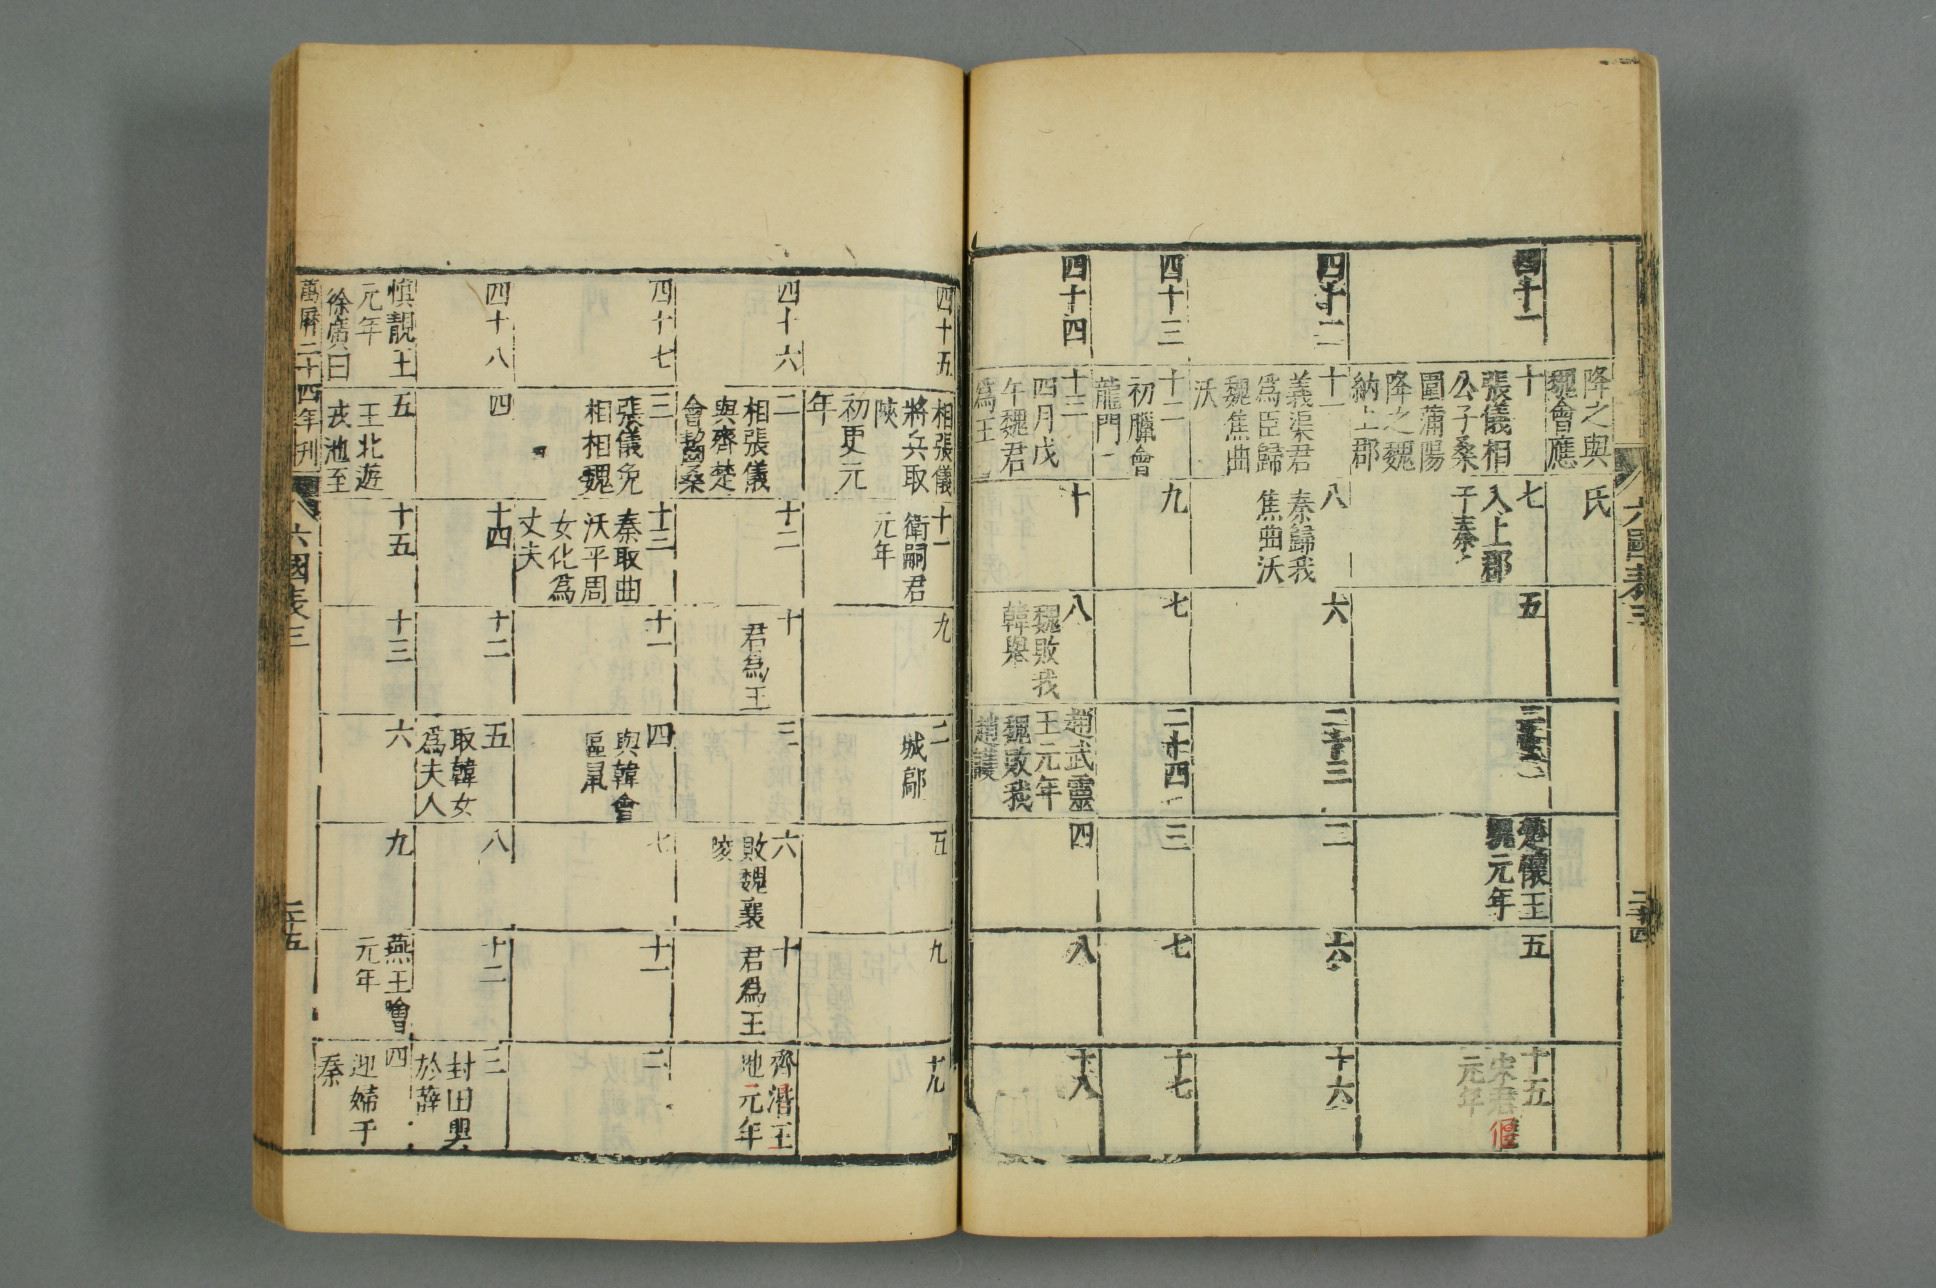 六國表三
降之與
魏會應
氏
四十一
十
張儀相
公子桑
圍蒲陽
降之魏
納上郡
七
入上郡
于秦
五
楚懷王
魏元年
五
十五
宋君偃
元年
四十二
十一
義渠君
為臣歸
魏焦曲
沃
八
秦歸我
焦曲沃
六
二十三
二
六
十六
四十三
十二
初臘會
龍門
九
七
二十四
三
七
十七
四十四
十三
四月戊
午魏君
為王
十
八
魏敗我
韓舉
趙武靈
王元年
魏敗我
趙護
四
八
十八
四十五
相張儀
將兵取
陝
初更元
年
十一
衛嗣君
元年
九
二
城鄗
五
九
十九
四十六
二
相張儀
與齊楚
會齧桑
十二
十
君為王
三
六
敗魏襄
陵
十
君為王
齊湣王
地元年
四十七
三
張儀免
相相魏
十三
秦取曲
沃平周
女化為
丈夫
十一
四
與韓會
區鼠
七
十一
二
四十八
四
十四
十二
五
取韓女
為夫人
八
十二
三
封田嬰
於薛
慎靚王
元年
徐廣曰
五
王北遊
戎池至
十五
十三
六
九
燕王噲
元年
四
迎婦于
秦
萬曆二十四年刊
六國表三
二十五